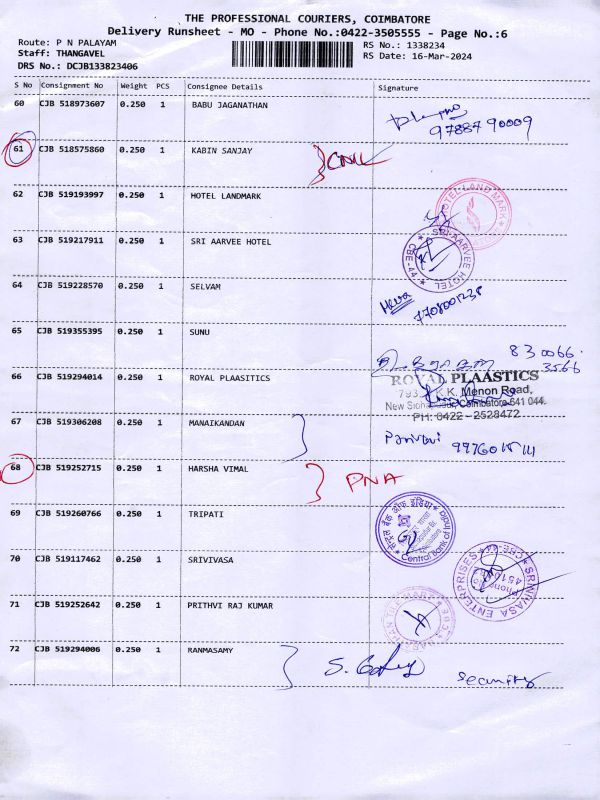 THE PROFESSIONAL COURIERS, COIMBATORE
Delivery Runsheet - MO - Phone No.:0422-3505555 - Page No.:6
Route: P N PALAYAM
Staff: THANGAVEL
DRS No.: DCJB133823406
RS No.: 1338234
RS Date: 16-Mar-2024
S No Consignment No Weight PCS Consignee Details Signature
60 CJB 518973607 0.250 1 BABU JAGANATHAN
9788790009
61 CJB 518575860 0.250 1 KABIN SANJAY
62 CJB 519193997 0.250 1 HOTEL LANDMARK
HOTEL LAND MARK
63 CJB 519217911 0.250 1 SRI AARVEE HOTEL
SRI AARVEE HOTEL
CBE-44
64 CJB 519228570 0.250 1 SELVAM
65 CJB 519355395 0.250 1 SUNU
830066
3566
66 CJB 519294014 0.250 1 ROYAL PLAASITICS
ROYAL PLAASTICS
K.K. Menon Road,
Coimbatore-641 044.
PH: 0422 - 2528472
67 CJB 519306208 0.250 1 MANAIKANDAN
68 CJB 519252715 0.250 1 HARSHA VIMAL
PNA
69 CJB 519260766 0.250 1 TRIPATI
Central Bank of India
70 CJB 519117462 0.250 1 SRIVIVASA
SRINIVASA ENTERPRISES
71 CJB 519252642 0.250 1 PRITHVI RAJ KUMAR
72 CJB 519294006 0.250 1 RANMASAMY
Security